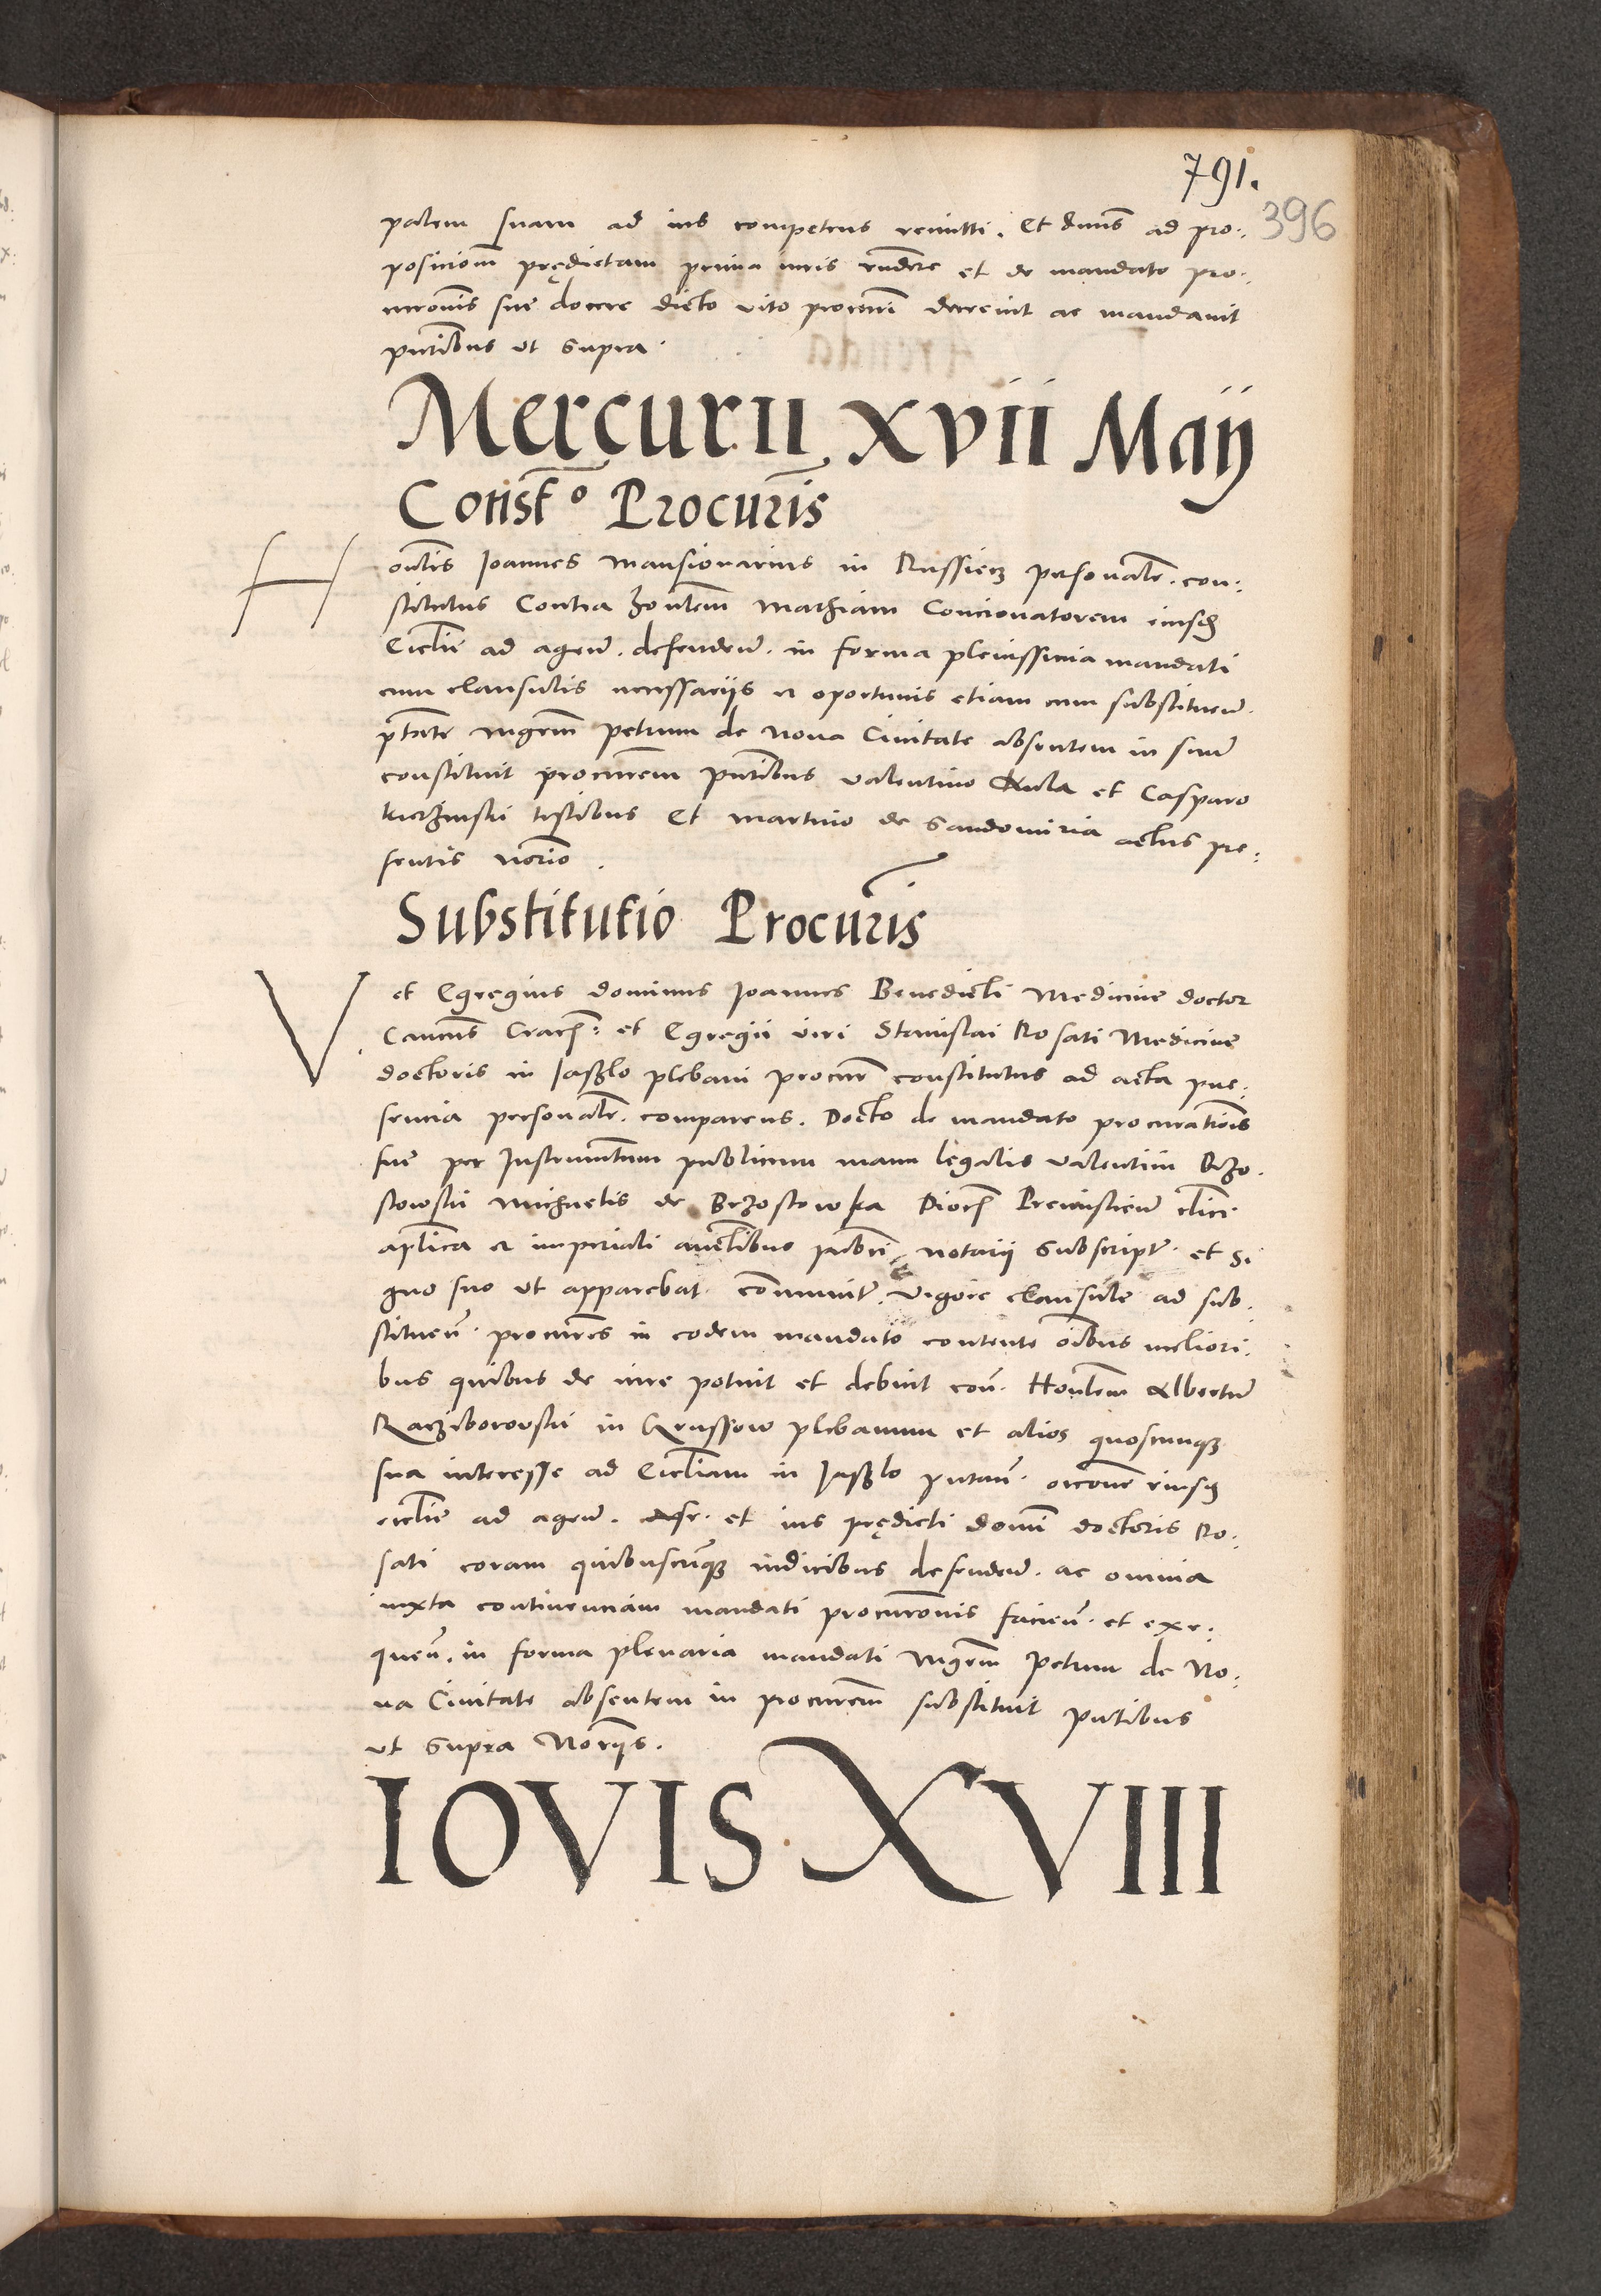 791.
396
palem suam ad ius competens remitti. Et dnus ad pro:
posicionem prędictam prima iuris rndere et de mandato pro:
curonis sue docere dicto vito procuri decreuit ac mandauit
pntibus ut supra.
Mercurii xvii Maij
Consto Procuris
Honlis Ioannes mansionarius in Russiecz personalr. con:
stitutus Contra honlem mathiam Concionatorem eiusd
Ecclie ad agen. defenden. in forma plenissima mandati
cum clausulis necessariis et oportunis etiam cum substituen.
ptate mgrm petrum de noua Ciuitate absentem in suum
constituit procurem pntibus valentino Aula et Casparo
kierzinski testibus Et martino de Sandomiria actus pre:
sentis norio.
Substitutio Procuris
Vet Egregius dominus Ioannes Benedicti Medicine doctor
Cancus Crac: et Egregii viri Stanislai Rosati Medicine
doctoris in Jasszlo plebani procur constitutus ad acta pre:
sencia personalr. comparens. Docto de mandato procurationis
sue per Instrumentum publicum manu legalis valentini Brzo.
stowski michaelis de Brzostowka Dioc Premislien clici
aplica et imperiali auctlibus publici notarii subscript. et si
gno suo ut apparebat communit. vigore clausule ad sub.
stituen. procures in eodem mandato contente oibus meliori.
bus quibus de iure potuit et debuit con. Honlem Albertum
Racziborowski in Krussow plebanum et alios quoscunque
sua interesse ad Eccliam in Jasszlo putan. occone eiusd
ecclie ad agen. defr. et ius prędicti domi doctoris Ro.
sati coram quibuscunque iudicibus defenden. ac omnia
iuxta continenciam mandati procuronis facien. et exe:
quen. in forma plenaria mandati mgrm Petrum de No:
ua Ciuitate absentem in procurem substituit pntibus
ut supra Noriis.
IOVIS XVIII